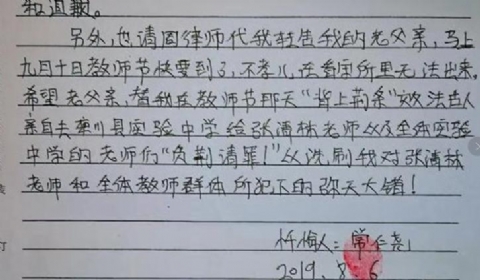 和道歉。
另外,也请周律师代我转告我的老父亲,马上
九月十日教师节快要到了,不孝儿在看守所里无法出来。
希望老父亲,替我在教师节那天“背上荆条”效法古人
亲自去栾川县实验中学给张清林老师以及全体实验
中学的老师们“负荆请罪!”以洗刷我对张清林
老师和全体教师群体所犯下的弥天大错!
忏悔人:常仁尧
2019.8.6